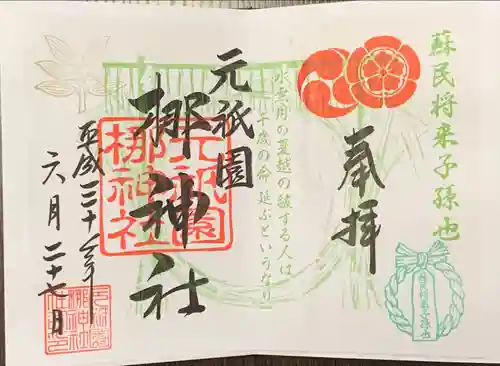 蘇民将来子孫也
奉拝
水無月の夏越の祓する人は
千歳の命延ぶというなり
元祇園
梛神社
元祇園
梛神社
平成三十年
六月二十七日